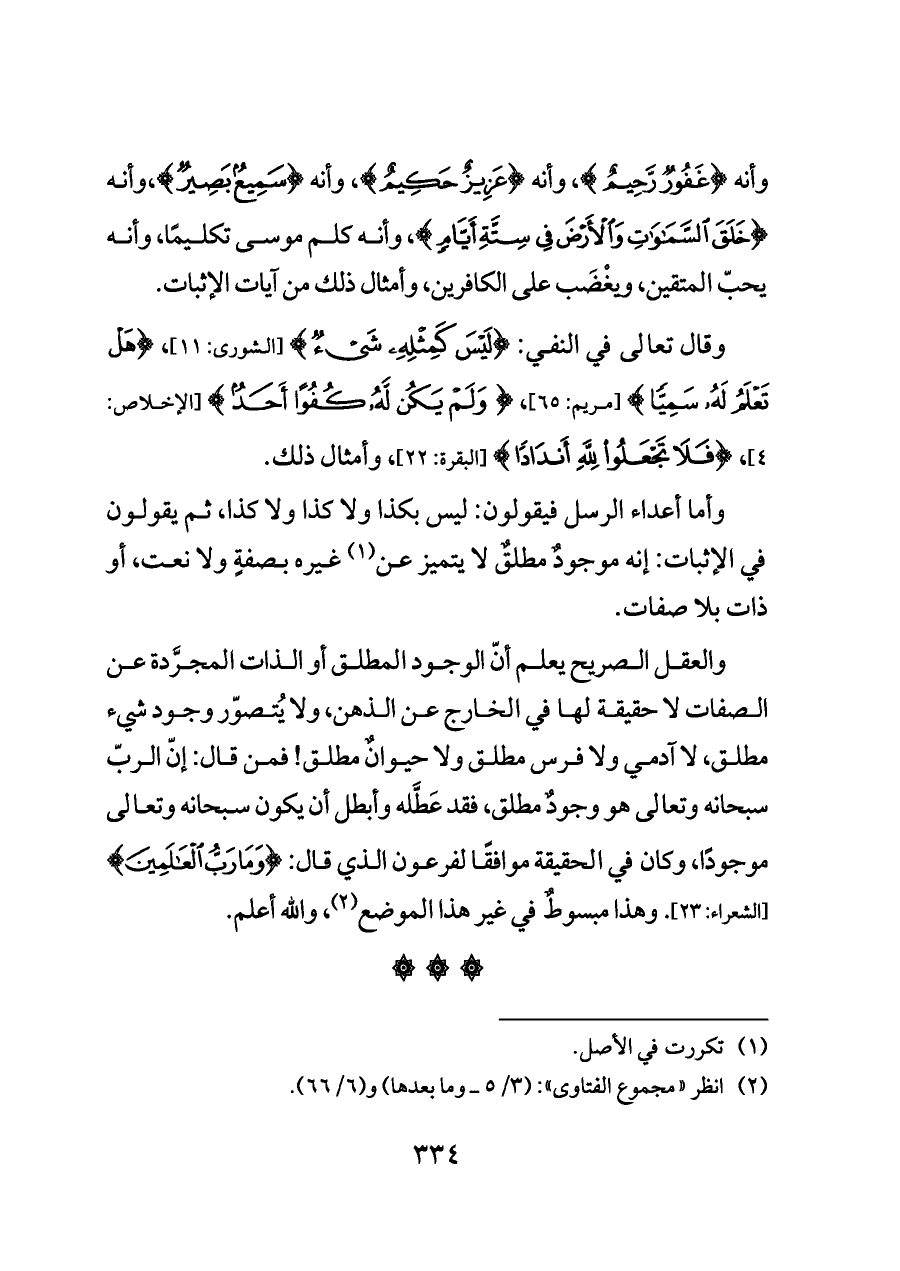 وأنه ﴿غَفُورٌ رَّحِيمٌ﴾، وأنه ﴿عَزِيزٌ حَكِيمٌ﴾، وأنه ﴿سَمِيعٌ بَصِيرٌ﴾، وأنه
﴿خَلَقَ ٱلسَّمَٰوَٰتِ وَٱلْأَرْضَ فِي سِتَّةِ أَيَّامٍ﴾، وأنه كلم موسى تكليمًا، وأنه
يحبّ المتقين، ويغْضَب على الكافرين، وأمثال ذلك من آيات الإثبات.
وقال تعالى في النفي: ﴿لَيْسَ كَمِثْلِهِۦ شَىْءٌ﴾ [الشورى: ١١]، ﴿هَلْ
تَعْلَمُ لَهُۥ سَمِيًّا﴾ [مريم: ٦٥]، ﴿وَلَمْ يَكُن لَّهُۥ كُفُوًا أَحَدٌ﴾ [الإخلاص:
٤]، ﴿فَلَا تَجْعَلُوا۟ لِلَّهِ أَندَادًا﴾ [البقرة: ٢٢]، وأمثال ذلك.
وأما أعداء الرسل فيقولون: ليس بكذا ولا كذا ولا كذا، ثم يقولون
في الإثبات: إنه موجودٌ مطلقٌ لا يتميز عن(١) غيره بصفةٍ ولا نعت، أو
ذات بلا صفات.
والعقل الصريح يعلم أنّ الوجود المطلق أو الذات المجرَّدة عن
الصفات لا حقيقة لها في الخارج عن الذهن، ولا يُتصوّر وجود شيء
مطلق، لا آدمي ولا فرس مطلق ولا حيوانٌ مطلق! فمن قال: إنّ الربّ
سبحانه وتعالى هو وجودٌ مطلق، فقد عَطَّله وأبطل أن يكون سبحانه وتعالى
موجودًا، وكان في الحقيقة موافقًا لفرعون الذي قال: ﴿وَمَا رَبُّ ٱلْعَٰلَمِينَ﴾
[الشعراء: ٢٣]. وهذا مبسوطٌ في غير هذا الموضع(٢)، والله أعلم.
(١) تكررت في الأصل.
(٢) انظر «مجموع الفتاوى»: (٣/ ٥ ـ وما بعدها) و(٦/ ٦٦).
٣٣٤